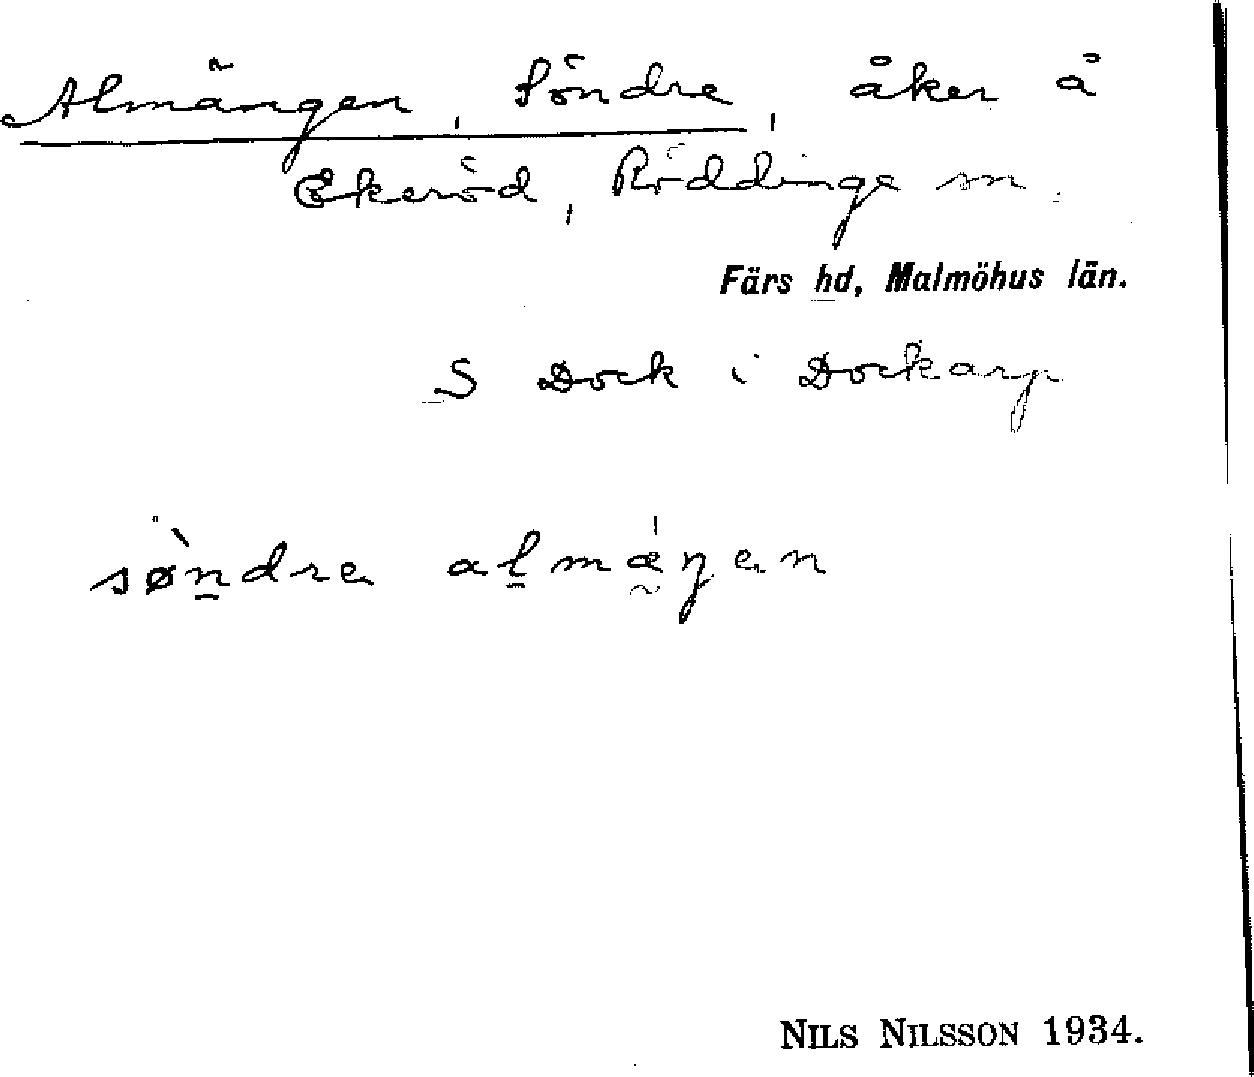 Almängen, Söndre, åker å
Ekeröd, Röddinge sn.
Färs hd, Malmöhus län.
S Dock i Dockarp
sø̀n̲dre al̲mǽ̰ŋen
NILS NILSSON 1934.